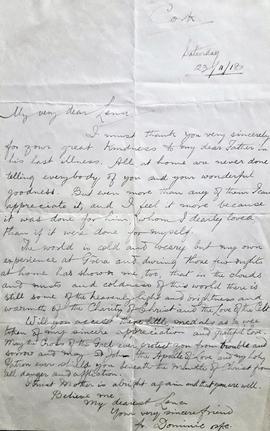 Saturday
23/11/18
My very dear Lena
I must thank you very sincerely
for your great kindness to my dear Father in
his last illness. All at home are never done
telling everybody of you and your wonderful
goodness. But even more than any of them I
appreciate it, and I feel it more because
it was done for him whom I dearly loved
than if it were done for myself.
The world is cold and weary but my own
experience at and during those few nights
at home has shown me, too, that in the clouds
and mists and coldness of this world there is
still some of the heavenly light and brightness and
warmth of the Charity of Christ and the love of the
Will you accept these little medals as a wee
token of my sincere appreciation and grateful love.
May the Cross of the protect you from trouble and
sorrow and may St John the Apostle of Love and my holy
Patron ever shield you beneath the Mantle of Christ from
all danger and
I trust Mother is alright again and that you are well.
Believe me
My dearest Lena
Your very sincere friend
Fr. Dominic